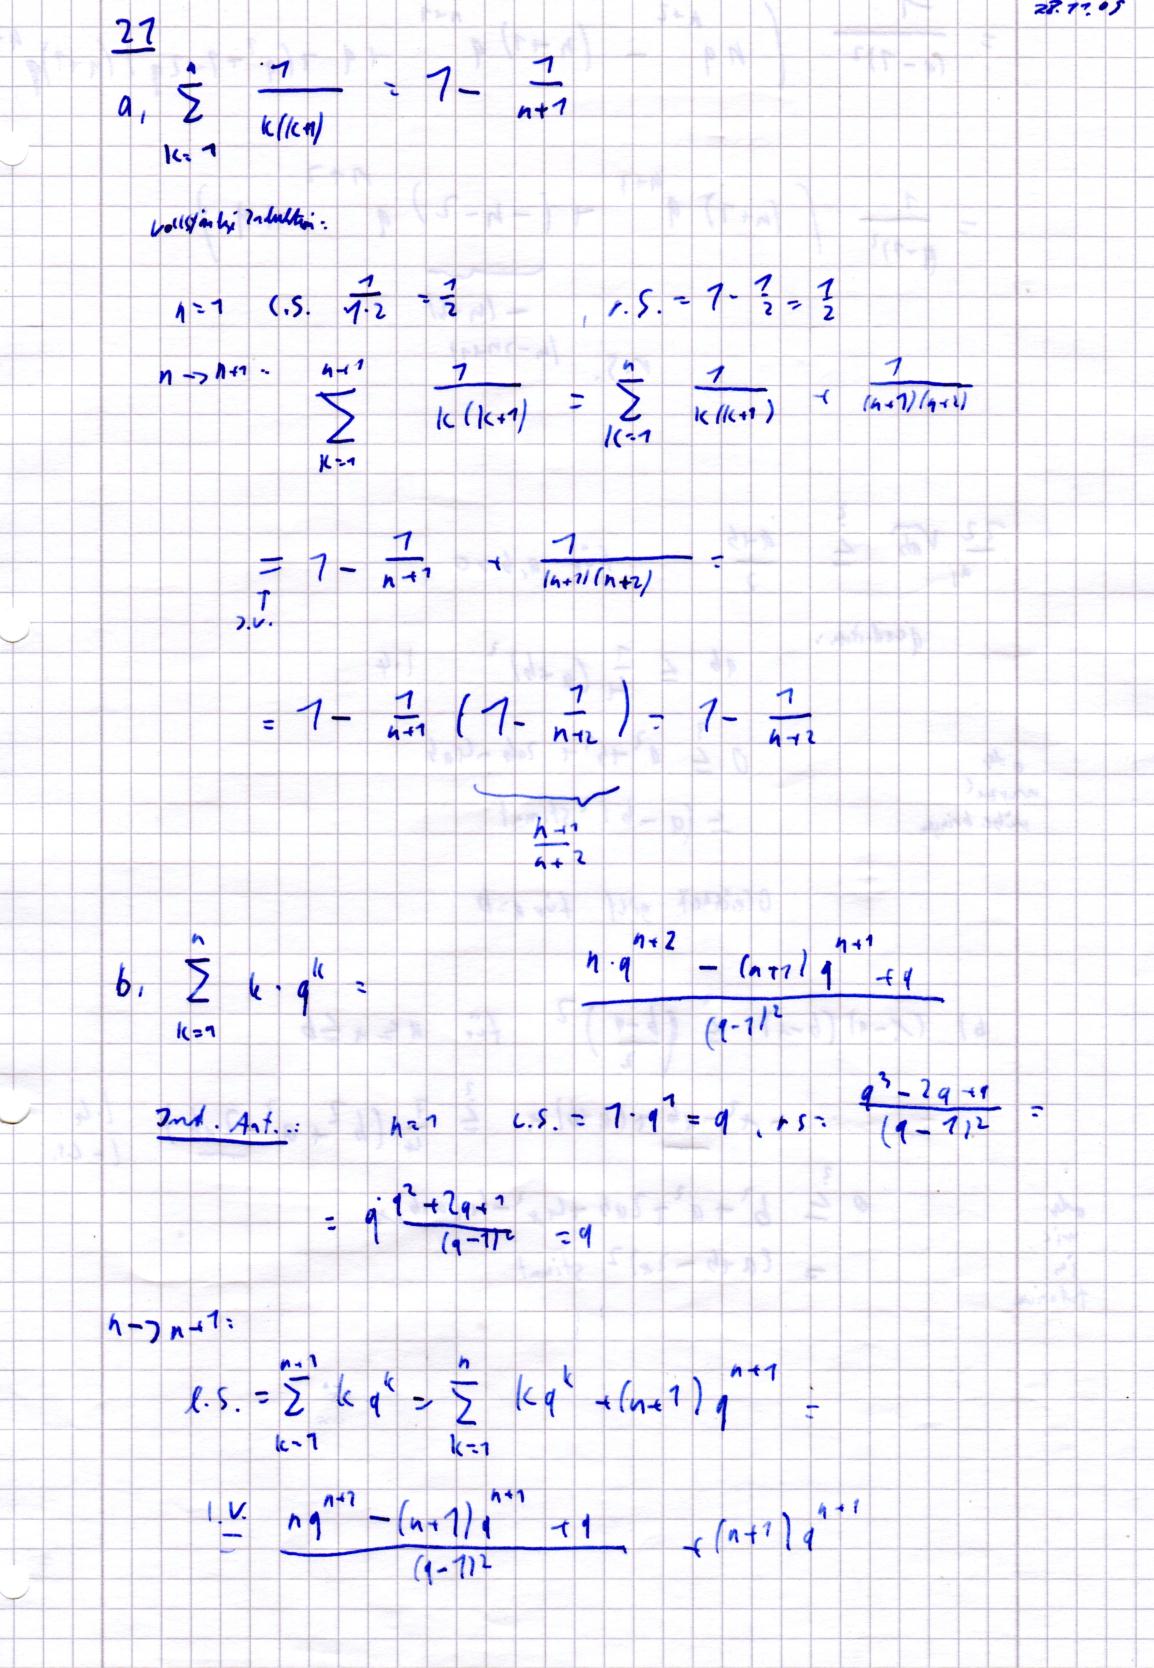 28.11.05
21
a, ∑_{k=1}^{n} 1/(k(k+1)) = 1 - 1/(n+1)
vollständige Induktion:
n=1 l.S. 1/(1·2) = 1/2 , r.S. = 1 - 1/2 = 1/2
n→n+1: ∑_{k=1}^{n+1} 1/(k(k+1)) = ∑_{k=1}^{n} 1/(k(k+1)) + 1/((n+1)(n+2))
= 1 - 1/(n+1) + 1/((n+1)(n+2)) =
↑
I.V.
= 1 - 1/(n+1) (1 - 1/(n+2)) = 1 - 1/(n+2)
(n+1)/(n+2)
b, ∑_{k=1}^{n} k·q^k = (n·q^{n+2} - (n+1) q^{n+1} + q)/(q-1)^2
Ind. Anf.: n=1 l.S. = 1·q^1 = q, rs = (q^3 - 2q + q)/(q-1)^2 =
= q (q^2+2q+1)/(q-1)^2 = q
n→n+1:
l.S. = ∑_{k=1}^{n+1} k q^k = ∑_{k=1}^{n} k q^k + (n+1) q^{n+1} =
I.V. = (n q^{n+2} - (n+1) q^{n+1} + q)/(q-1)^2 + (n+1) q^{n+1}